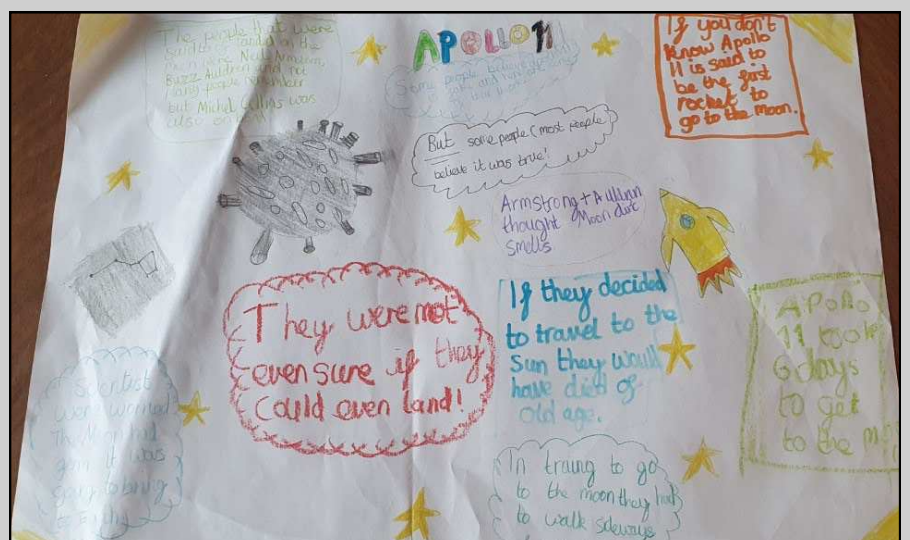 The people that were
said to of landed on the
Moon were Neile Armstron,
Buzz Auldrin and not
many people remember
but Michel Collins was
also on
APOLLO 11
Some people believe
fake and
But some people (most people)
believe it was true!
If you don't
Know Apollo
11 is said to
be the first
rocket to
go to the moon.
Armstrong + Auldrin
thought Moon dirt
smells
They were not
even sure if they
could even land!
If they decided
to travel to the
Sun they would
have died of
old age.
APollo
11 took
6 days
to get
to the
Scientist
were worried
The Moon had
germ it was
going to bring
to Earth
In traing to go
to the moon they had
to walk sideways